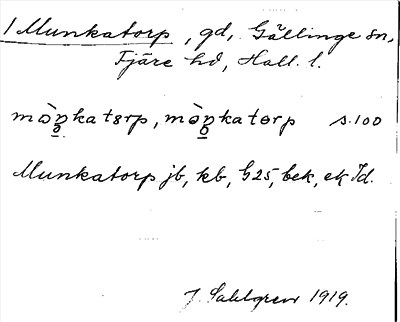 1 Munkatorp, gd, Gällinge sn,
Fjäre hd, Hall. l.
mòŋkatɵrp, mòŋkatɵrp s. 100
Munkatorp jb, kb, G25, bek, ek Id.
J. Sahlgren 1919.